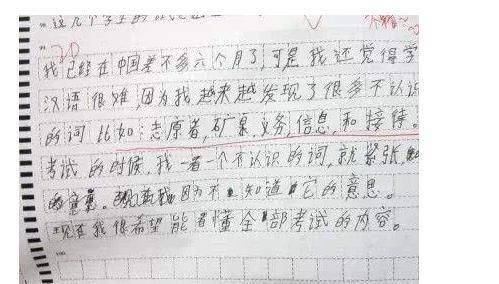 这几个学生的
20
我已经在中国差不多六个月了,可是我还觉得学
汉语很难,因为我越来越发现了很多不认识
的词 比如:志愿者,矿泉,义务,信息,和接待。
考试的时候,我一看一个不认识的词,就紧张,
的意思。因为不知道它的意思。
现在我很希望能看懂全部考试的内容。